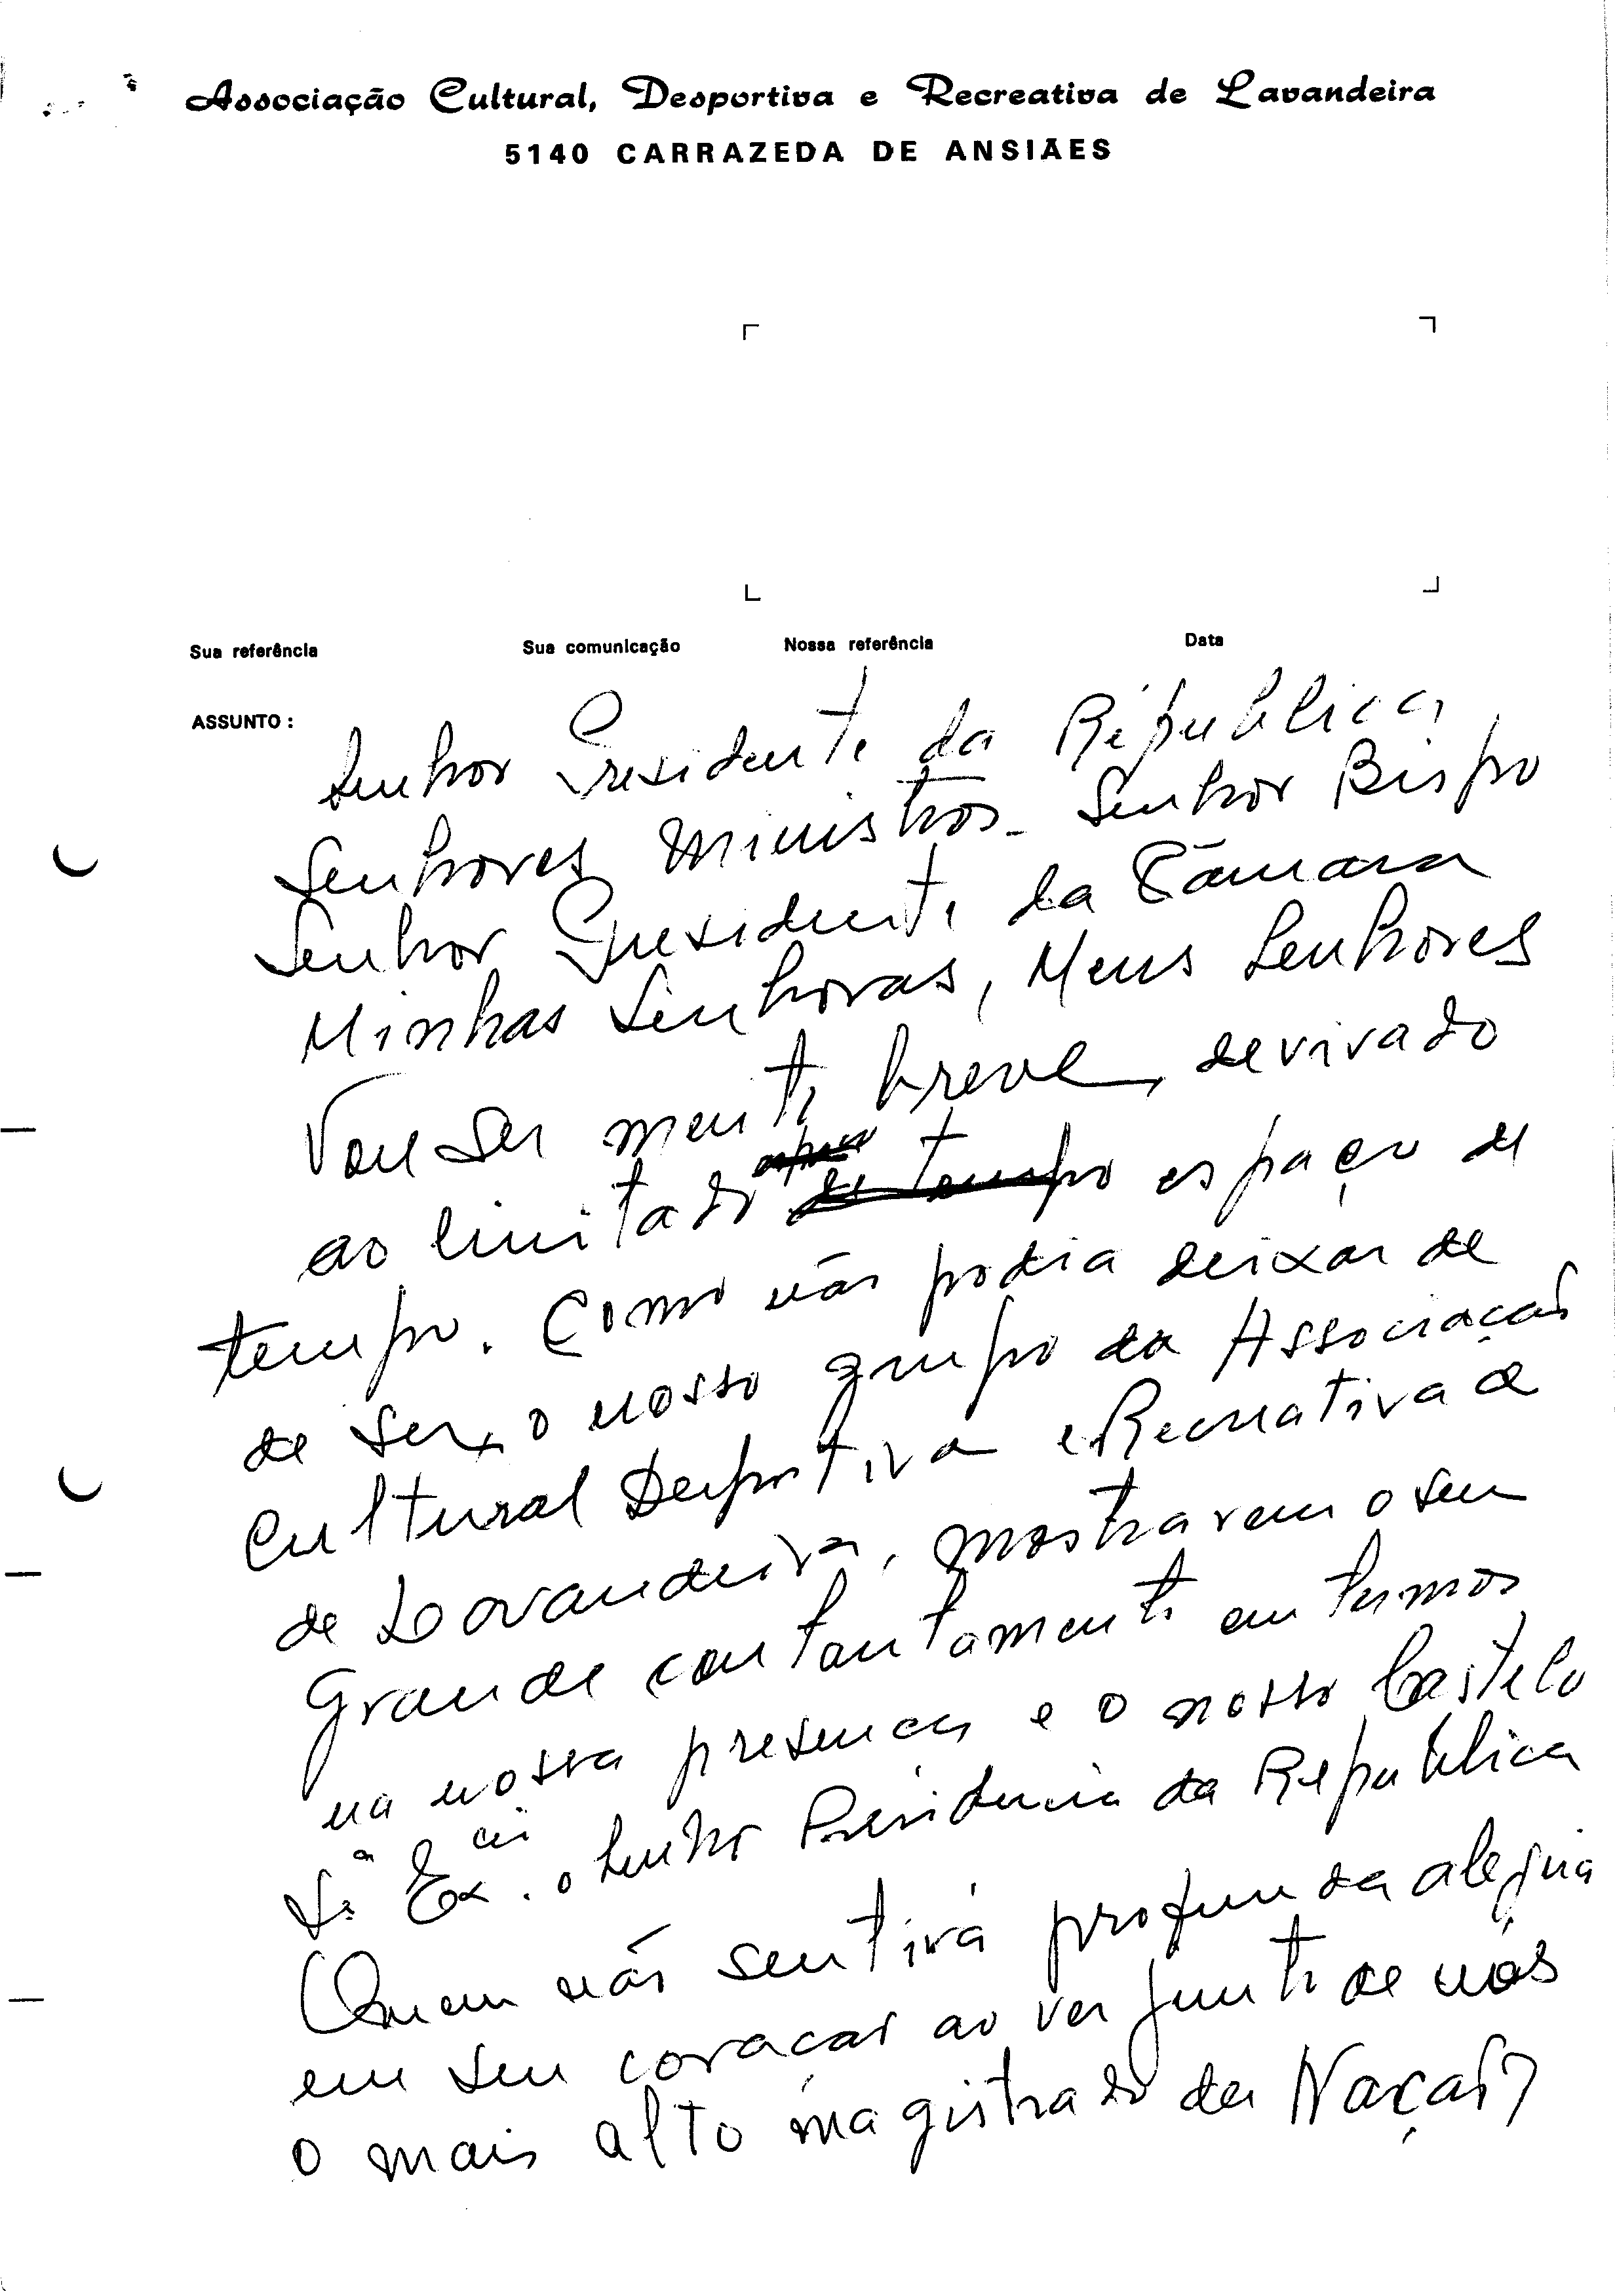 Associação Cultural, Desportiva e Recreativa de Lavandeira
5140 CARRAZEDA DE ANSIÃES
Sua referência Sua comunicação Nossa referência Data
ASSUNTO :
Senhor Presidente da República
Senhores Ministros - Senhor Bispo
Senhor Presidente da Câmara
Minhas Senhoras, Meus Senhores
Vou ser breve, derivado
ao limitado espaço de
tempo. Como não podia deixar de
de ser, o nosso grupo da Associação
Cultural Desportiva e Recreativa
de Lavandeira, mostrarem o seu
Grande em termos
na nossa presença e o nosso Castelo
Sª Excia. o Senhor da República
Quem não sentirá profunda alegria
em seu coração ao ver junto de nós
o mais alto magistrado da Nação?